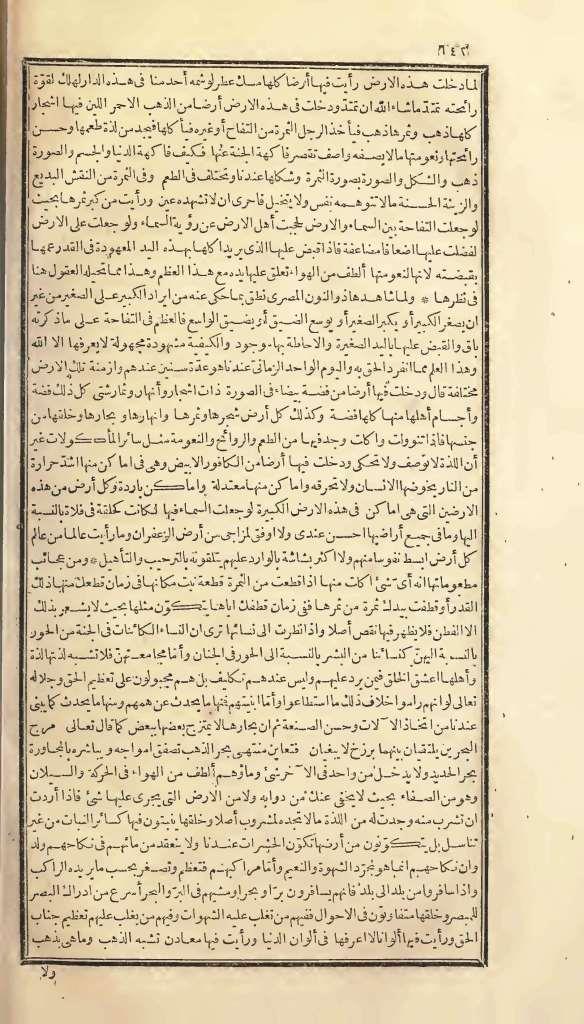 ٦٤٢
لما دخلت هذه الارض رأيت فيها أرضا كلها مسك عطر لو شمه أحد منا في هذه الدار لهلك لقوّة
رائحته تمتد ماشاء الله ان تمتد ودخلت في هذه الارض أرضا من الذهب الاحمر اللين فيها اشجار
كلها ذهب وثمرها ذهب فيأخذ الرجل الثمرة من التفاح أو غيره فيأكلها فيجد من لذة طعمها وحسن
رائحتها ونعومتها مالا يصفه واصف تقصر فاكهة الجنة عنها فكيف فاكهة الدنيا والجسم والصورة
ذهب والشكل والصورة بصورة الثمرة وشكلها عندنا وتختلف في الطعم وفي الثمرة من النقش البديع
والزينة الحسنة مالا تتوهمه نفس ولا يتخيل فاحرى ان لا تشهده عين ورأيت من كبر ثمرها بحيث
لو جعلت التفاحة بين السماء والارض لحجبت أهل الارض عن رؤية السماء ولو جعلت على الارض
لفضلت عليها اضعافا مضاعفة فاذا قبض عليها الذى يريد اكلها بهذه اليد المعهودة في القدر عمها
بقبضته لانها لنعومتها ألطف من الهواء تطبق عليها يده مع هذا العظم وهذا مما تحيله العقول هنا
في نظرها * ولما شاهدها ذو النون المصرى نطق بما حكى عنه من ايراد الكبير على الصغير من غير
ان يصغر الكبير أو يكبر الصغير أو يوسع الضيق أو يضيق الواسع فالعظم في التفاحة على ماذكرته
باق والقبض عليها باليد الصغيرة والاحاطة بها وجود والكيفية مشهودة مجهولة لا يعرفها الا الله
وهذا العلم مما انفرد الحق به واليوم الواحد الزمانى عندنا هو عدة سنين عندهم وازمنة تلك الارض
مختلفة قال ودخلت فيها أرضا من فضة بيضاء في الصورة ذات اشجار وأنهار وثمار شتى كل ذلك فضة
وأجسام أهلها منها كلها فضة وكذلك كل أرض شجرها وثمرها وانهارها وبحارها وخلقها من
جنسها فاذا تنوولت واكلت وجد فيها من الطعم والروائح والنعومة مثل سائر المأكولات غير
أن اللذة لا توصف ولا تحكى ودخلت فيها أرضا من الكافور الابيض وهى في اماكن منها اشد حرارة
من النار يخوضها الانسان ولا تحرقه واماكن منها معتدلة واماكن باردة وكل أرض من هذه
الارضين التى هى اماكن في هذه الارض الكبيرة لو جعلت السماء فيها لكانت كحلقة في فلاة بالنسبة
اليها وما في جميع أراضيها احسن عندى ولا أوفق لمزاجى من أرض الزعفران وما رأيت عالما من عالم
كل أرض ابسط نفوسا منهم ولا اكثر بشاشة بالوارد عليهم يتلقونه بالترحيب والتأهيل * ومن عجائب
مطعوماتها انه أى شئ اكلت منها اذا قطعت من الثمرة قطعة نبت مكانها في زمان قطعك منها ذلك
القدر أو قطفت بيدك ثمرة من ثمرها ففى زمان قطفك اياها يتكوّن مثلها بحيث لا يشعر بذلك
الا الفطن فلا يظهر فيها نقص أصلا واذا نظرت الى نسائها ترى ان النساء الكائنات في الجنة من الحور
بالنسبة اليهنّ كنسائنا من البشر بالنسبة الى الحور في الجنان وأما مجامعتهنّ فلا تشبه لذتها لذة
وأهلها اعشق الخلق فيمن يرد عليهم وليس عندهم تكليف بل هم مجبولون على تعظيم الحق وجلاله
تعالى لو انهم راموا خلاف ذلك ما استطاعوا وأما ابنيتهم فمنها ما يحدث عن هممهم ومنها ما يحدث كما يبنى
عندنا من اتخاذ الآلات وحسن الصنعة ثم ان بحارها لا يمتزج بعضها ببعض كما قال تعالى مرج
البحرين يلتقيان بينهما برزخ لا يبغيان فتعاين منتهى بحر الذهب تصفق امواجه ويباشره بالمجاورة
بحر الحديد ولا يدخل من واحد في الآخر شئ وماؤهم ألطف من الهواء في الحركة والسيلان
وهو من الصفاء بحيث لا يخفى عنك من دوابه ولا من الارض التى يجرى عليها شئ فاذا أردت
ان تشرب منه وجدت له من اللذة مالا تجده لمشروب أصلا وخلقها ينبتون فيها كسائر النبات من غير
تناسل بل يتكوّنون من أرضها تكوّن الحشرات عندنا ولا ينعقد من مائهم في نكاحهم ولد
وان نكاحهم انما هو لمجرّد الشهوة والنعيم وأما مراكبهم فتعظم وتصغر بحسب ما يريده الراكب
واذا سافروا من بلد الى بلد فانهم يسافرون برّا وبحرا ومشيهم في البرّ والبحر أسرع من ادراك البصر
للمبصر وخلقها متفاوتون في الاحوال ففيهم من تغلب عليه الشهوات وفيهم من يغلب عليهم تعظيم جناب
الحق ورأيت فيها ألوانا لا اعرفها في ألوان الدنيا ورأيت فيها معادن تشبه الذهب وماهى بذهب
ولا